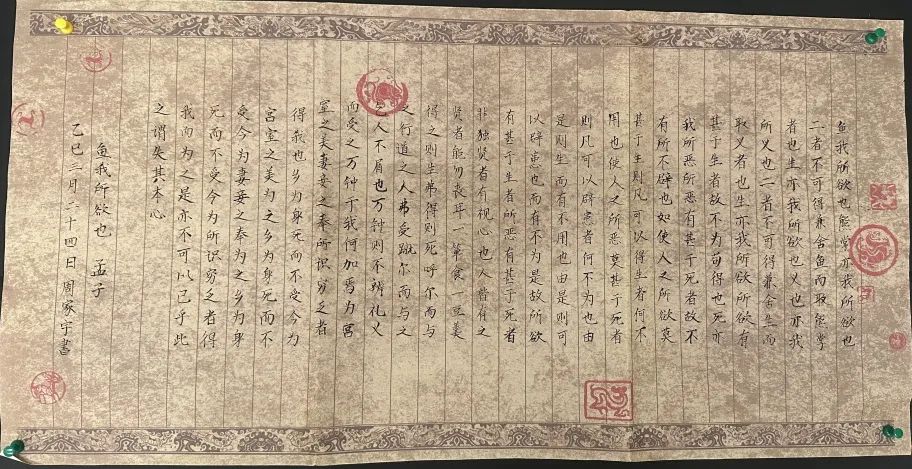 鱼我所欲也熊掌亦我所欲也
二者不可得兼舍鱼而取熊掌
者也生亦我所欲也义也亦我
所义也二者不可得兼舍生而
取义者也生亦我所欲所欲有
甚于生者故不为苟得也死亦
我所恶所恶有甚于死者故不
有所不辟也如使人之所欲莫
甚于生则凡可以得生者何不
用也使人之所恶莫甚于死者
则凡可以辟患者何不为也由
是则生而有不用也由是则可
以辟患也而有不为是故所欲
有甚于生者所恶有甚于死者
非独贤者有视心也人皆有之
贤者能勿丧耳一箪食一豆美
得之则生弗得则死呼尔而与
之行道之人弗受蹴尔而与之
乞人不屑也万钟则不辨礼义
而受之万钟于我何加焉为宫
室之美妻妾之奉所识穷乏者
得我也乡为身死而不受今为
宫室之美为之乡为身死而不
受今为妻妾之奉为之乡为身
死而不受今为所识穷乏者得
我而为之是亦不可以已乎此
之谓失其本心
鱼我所欲也 孟子
乙巳三月二十四日周家宇书